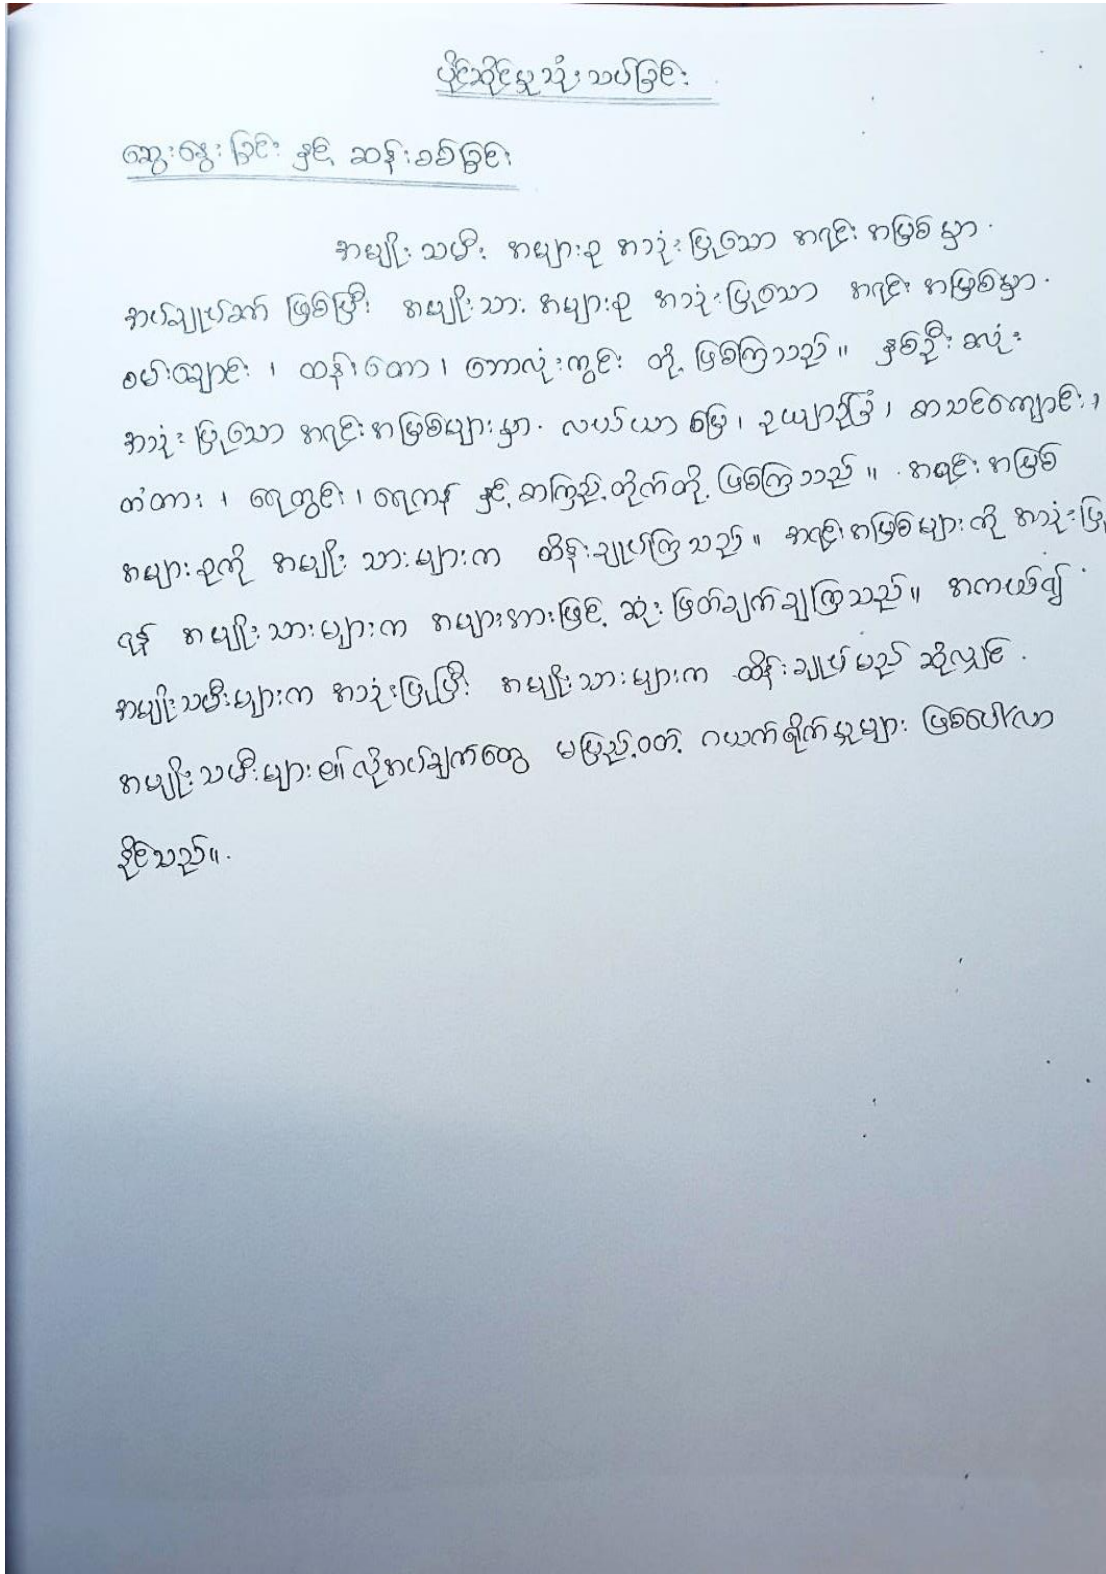 ပိုင်ဆိုင်မှုသုံးသပ်ခြင်း
ဆွေးနွေးခြင်း နှင့် ဆန်းစစ်ခြင်း
အမျိုးသမီး အများစု အသုံးပြုသော အရင်းအမြစ်မှာ
အပ်ချုပ်ဆိုင် ဖြစ်ပြီး အမျိုးသား အများစု အသုံးပြုသော အရင်းအမြစ်မှာ
စမ်းချောင်း ၊ ထန်းတော ၊ ဘောလုံးကွင်း တို့ ဖြစ်ကြသည်။ နှစ်ဦးစလုံး
အသုံးပြုသော အရင်းအမြစ်များမှာ လယ်ယာမြေ ၊ ဥယျာဉ်ခြံ ၊ စာသင်ကျောင်း ၊
တံတား ၊ ရေတွင်း ၊ ရေကန် နှင့် စာကြည့်တိုက်တို့ ဖြစ်ကြသည်။ အရင်းအမြစ်
အများစုကို အမျိုးသားများက ထိန်းချုပ်ကြသည်။ အရင်းအမြစ်များကို အသုံးပြု
ရန် အမျိုးသားများက အများအားဖြင့် ဆုံးဖြတ်ချက်ချကြသည်။ အကယ်၍
အမျိုးသမီးများက အသုံးပြုပြီး အမျိုးသားများက ထိန်းချုပ်မည် ဆိုလျှင်
အမျိုးသမီးများ၏ လိုအပ်ချက်တွေ မပြည့်ဝတဲ့ ဂယက်ရိုက်မှုများ ဖြစ်ပေါ်လာ
နိုင်သည်။